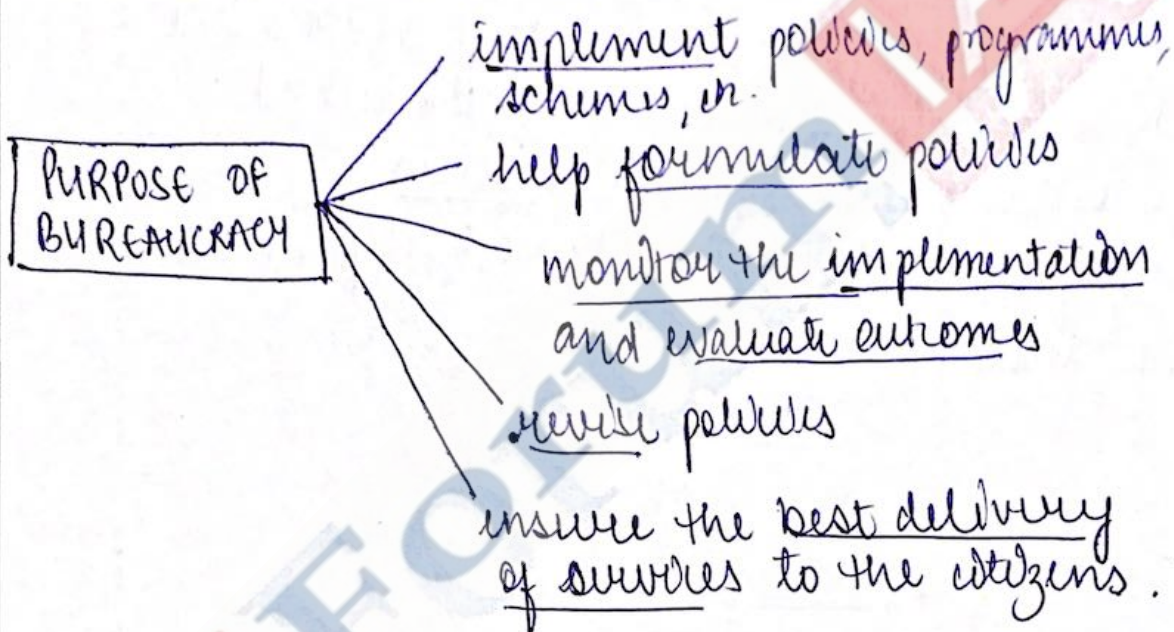 PURPOSE OF
BUREAUCRACY
implement policies, programmes,
schemes, etc.
help formulate policies
monitor the implementation
and evaluate outcomes
revise policies
ensure the best delivery
of services to the citizens.
Forum